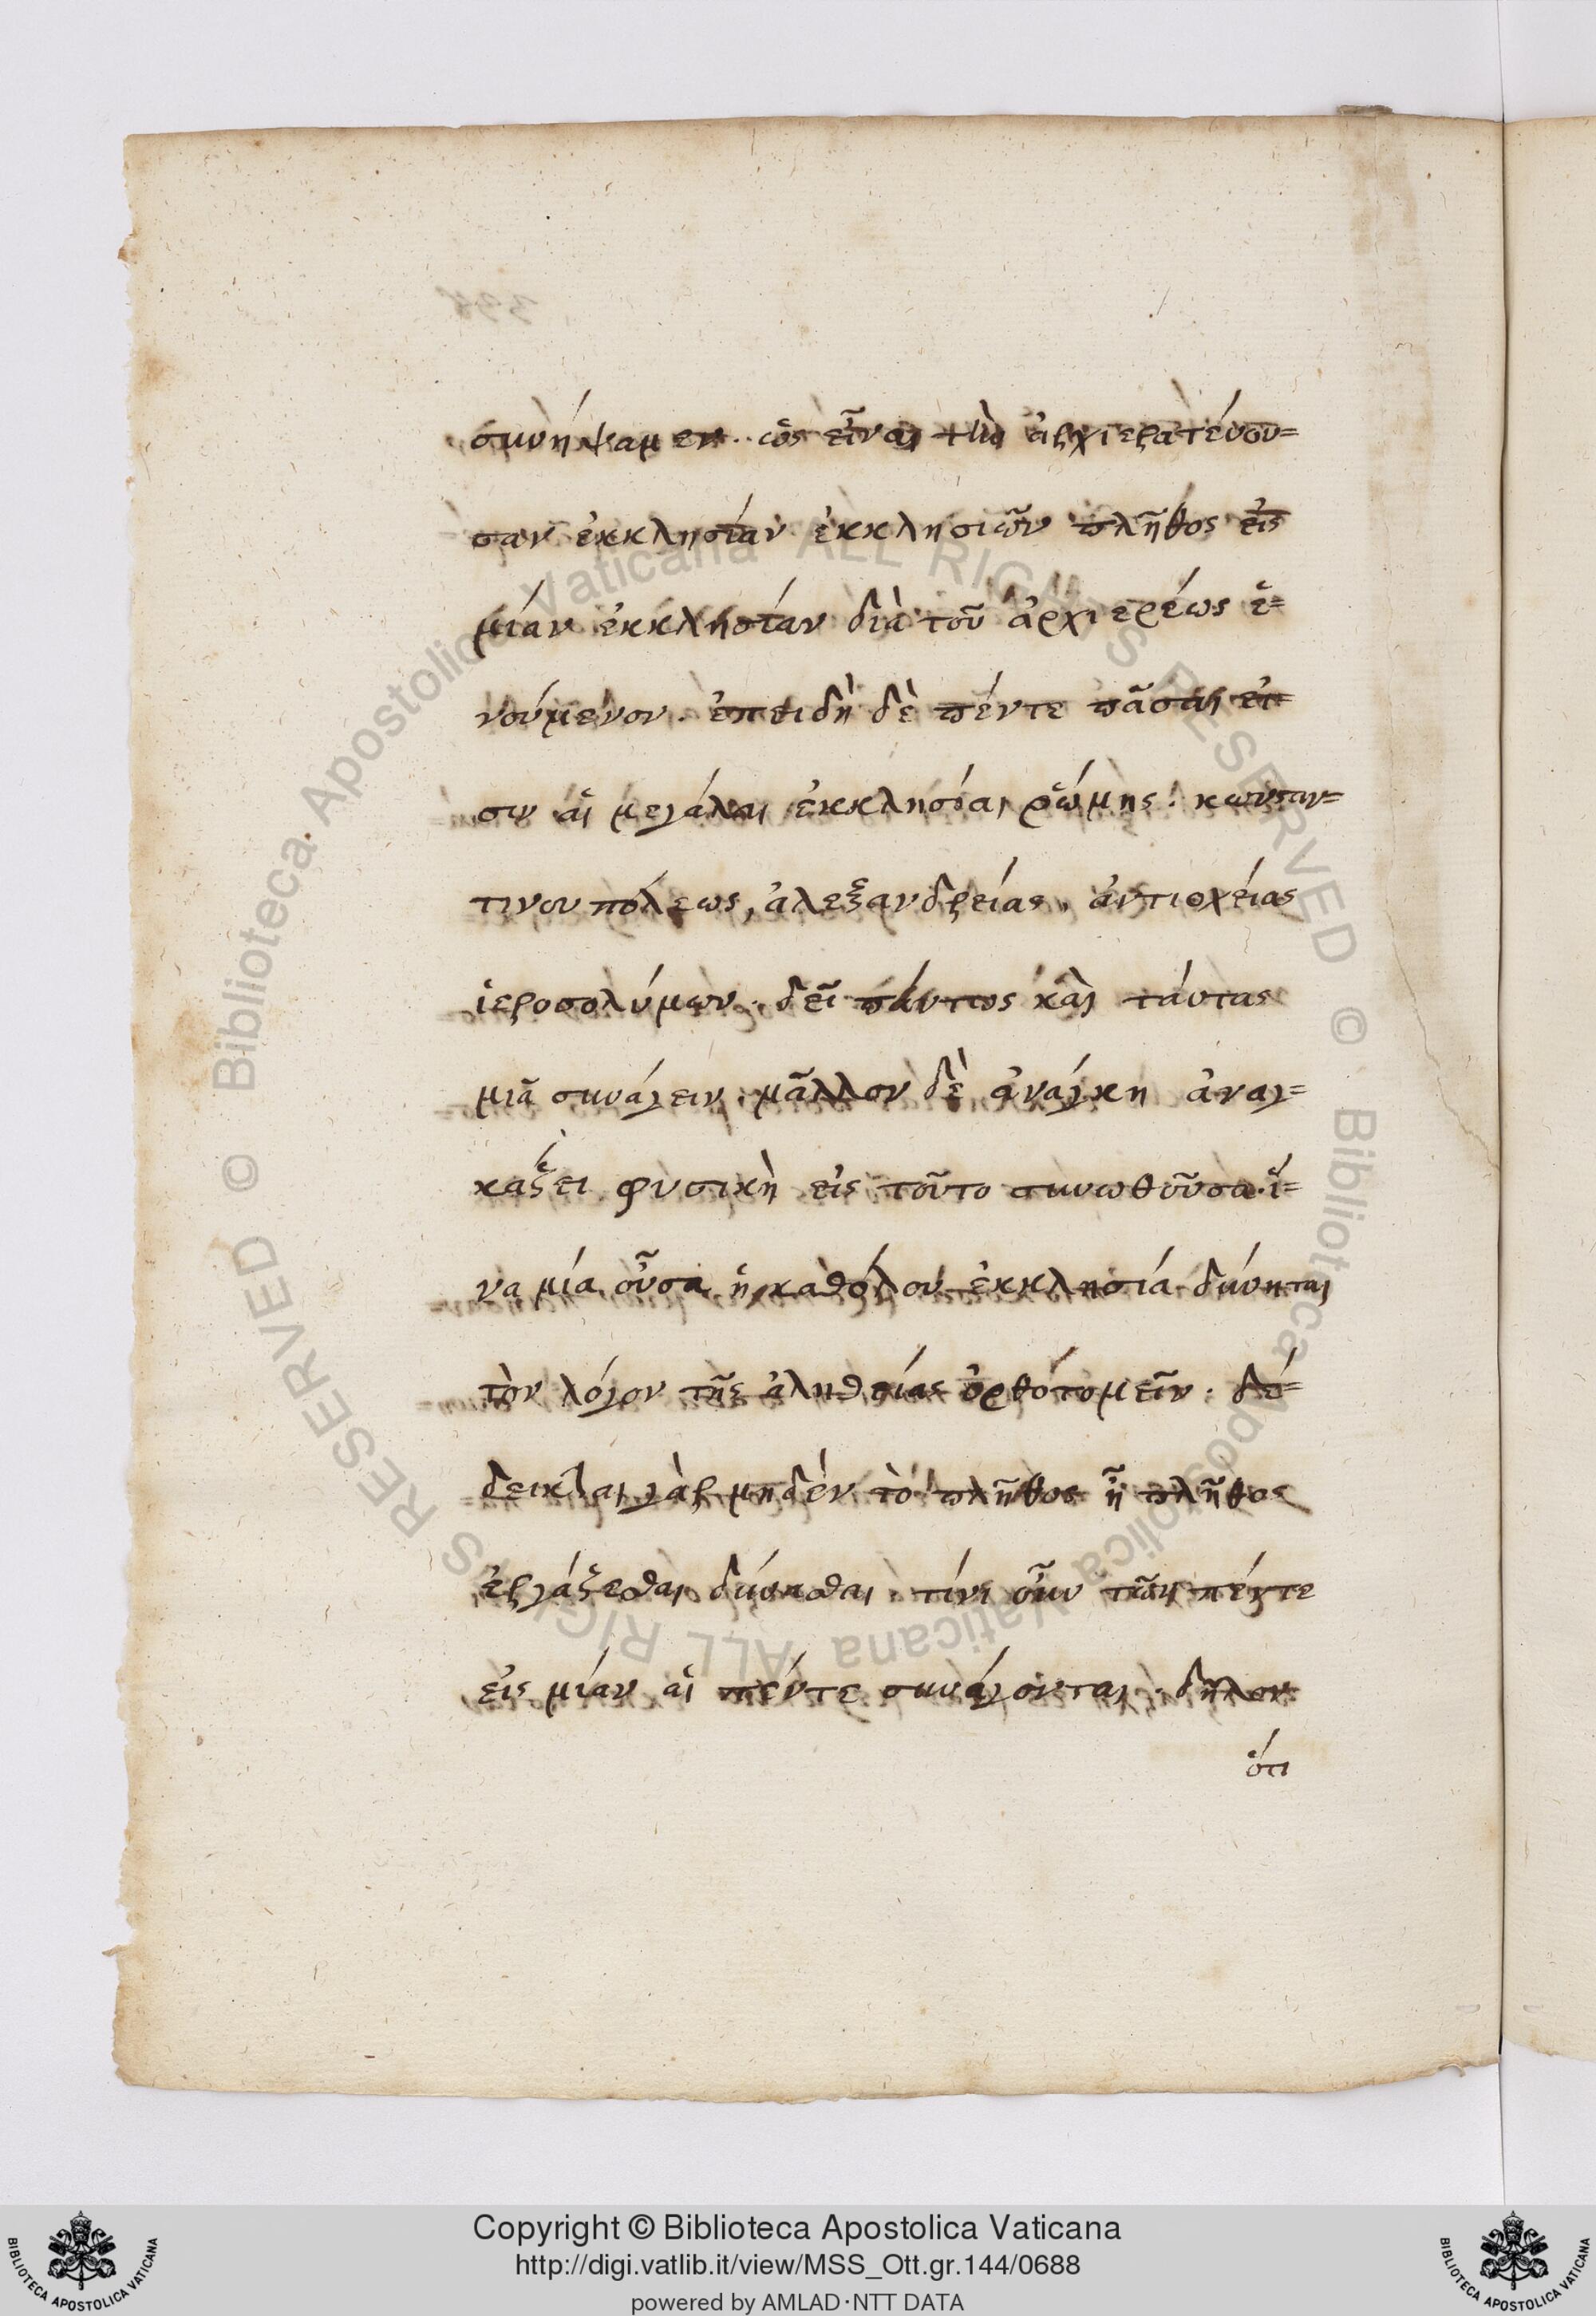 συνήψαμεν. ὡς εἶναι τὴν ἀρχιερατεύου=
σαν ἐκκλησίαν ἐκκλησιῶν πλῆθος εἰς
μίαν ἐκκλησίαν διὰ τοῦ ἀρχιερέως ἑ=
νούμενον. ἐπειδὴ δὲ πέντε πᾶσαι εἰ=
σιν αἱ μεγάλαι ἐκκλησίαι ῥώμης. κωνσταν=
τινουπόλεως, ἀλεξανδρείας, ἀντιοχείας
ἱεροσολύμων. δεῖ πάντως καὶ ταύτας
μιᾶ συνάγειν. μᾶλλον δὲ ἀνάγκη ἀναγ=
κάζει φυσικὴ εἰς τοῦτο συνωθοῦσα. ἵ=
να μία οὖσα ἡ καθόλου ἐκκλησία δύνηται
τὸν λόγον τῆς ἀληθείας ὀρθοτομεῖν. δέ=
δεικται γὰρ μηδὲν τὸ πλῆθος ἧ πλῆθος
ἐργάζεσθαι δύνασθαι. τίνι οὖν τῶν πέντε
εἰς μίαν αἱ πέντε συνάγονται. δῆλον
ὅτι
398
Copyright © Biblioteca Apostolica Vaticana
http://digi.vatlib.it/view/MSS_Ott.gr.144/0688
powered by AMLAD·NTT DATA
BIBLIOTECA APOSTOLICA VATICANA
BIBLIOTECA APOSTOLICA VATICANA
© Biblioteca Apostolica Vaticana ALL RIGHTS RESERVED
© Biblioteca Apostolica Vaticana ALL RIGHTS RESERVED